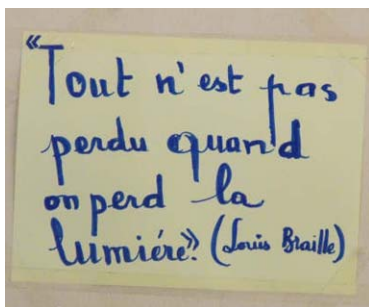 "Tout n'est pas
perdu quand
on perd la
lumiére." (Louis Braille)